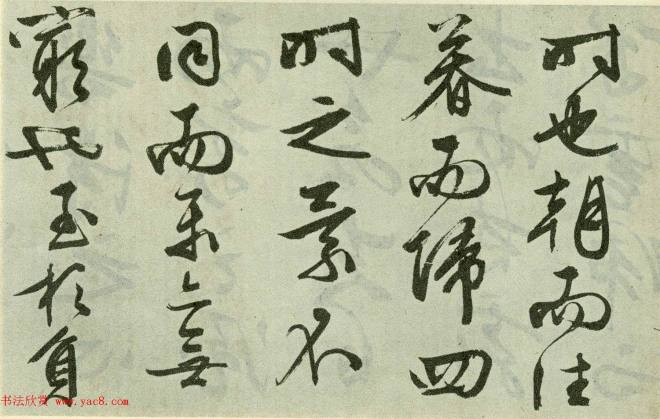 时也朝而往
暮而归四
时之景不
同而乐无
穷也至于负
书法欣赏 www.yac8.com